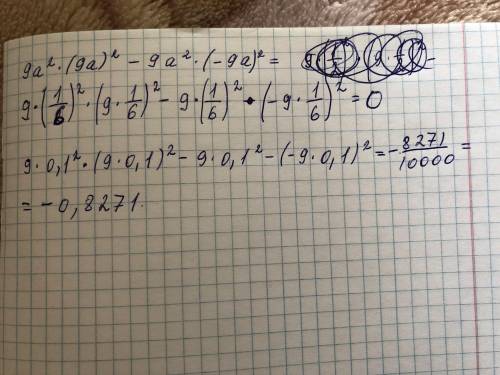 9a² · (9a)² - 9a² · (-9a)² =
9 · (1/6)² · (9 · 1/6)² - 9 · (1/6)² · (-9 · 1/6)² = 0
9 · 0,1² · (9 · 0,1)² - 9 · 0,1² - (-9 · 0,1)² = - 8271/10000 =
= - 0,8271.